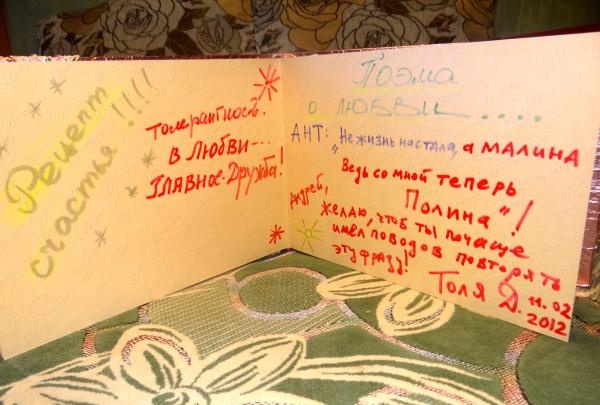 Рецепт
счастья!!!!
Толерантность.
В Любви-..
Главное-Дружба!
Поэма
о любви....
АНТ: "Не жизнь настала, а МАЛИНА
Ведь со мной теперь
Полина"!
Андрей,
желаю, чтоб ты почаще
имел поводов повторять
эту фразу!
Толя Д. 11.02
2012